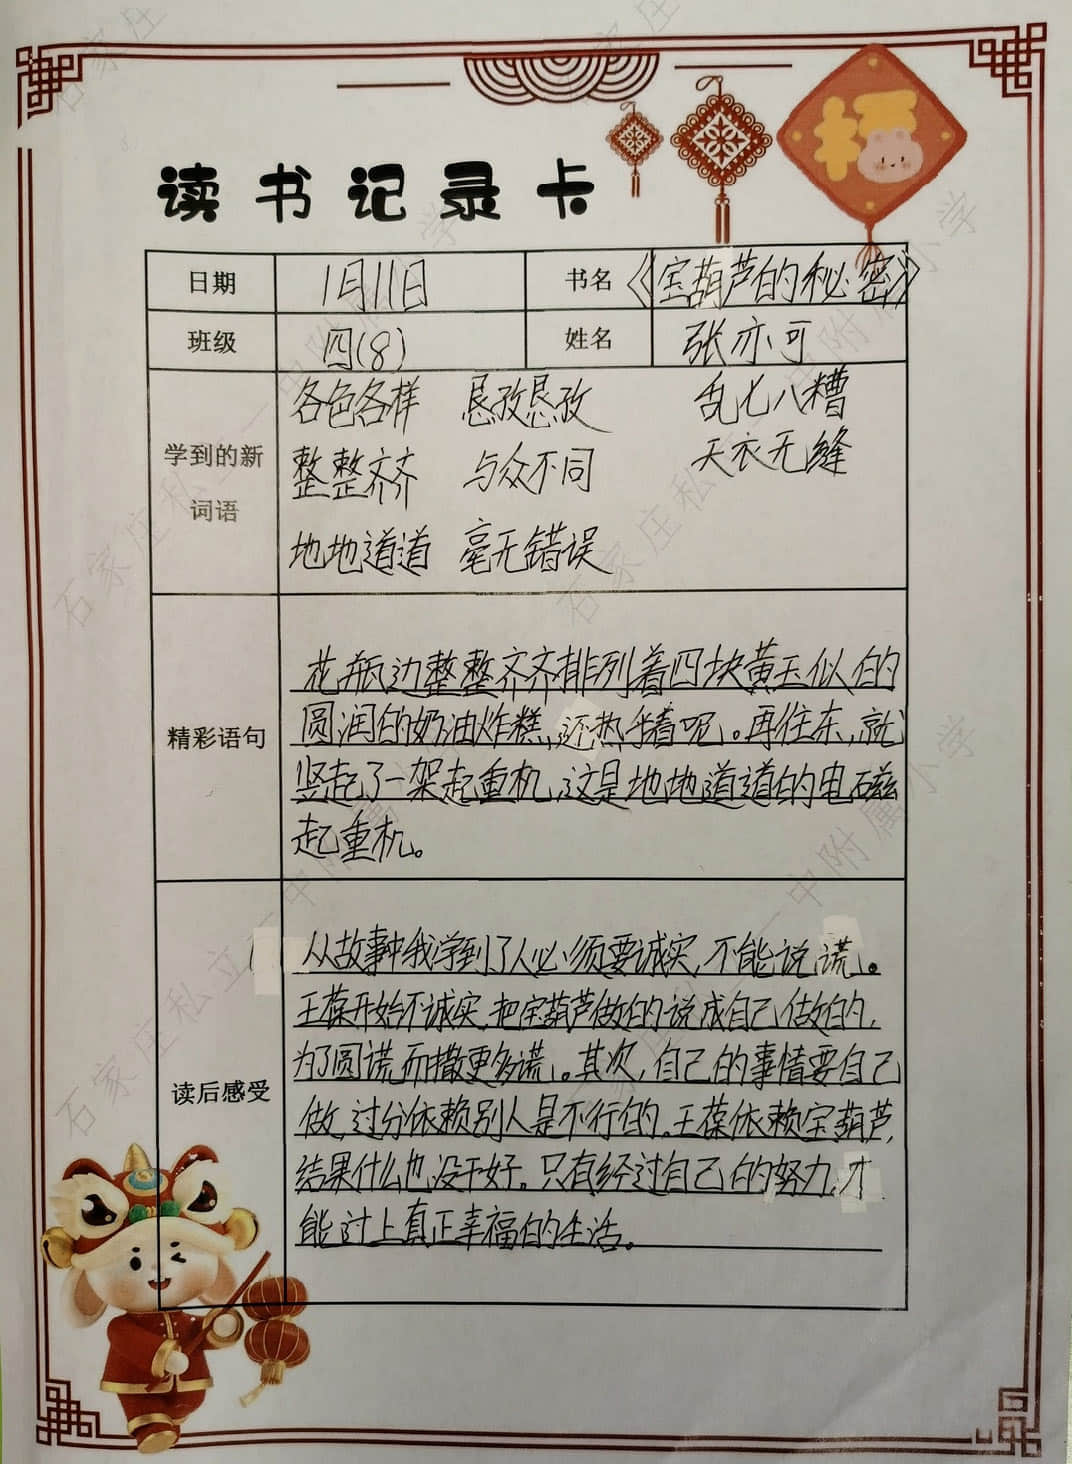 福
读书记录卡
日期 1月11日 书名 《宝葫芦的秘密》
班级 四(8) 姓名 张亦可
学到的新词语
各色各样 恳孜恳孜 乱七八糟
整整齐齐 与众不同 天衣无缝
地地道道 毫无错误
精彩语句
花瓶边整整齐齐排列着四块黄玉似的
圆润的奶油炸糕,还热着呢。再往东,就
竖起了一架起重机,这是地地道道的电磁
起重机。
读后感受
从故事中我学到了人必须要诚实,不能说谎。
王葆开始不诚实,把宝葫芦做的说成自己做的,
为了圆谎而撒更多谎。其次,自己的事情要自己
做,过分依赖别人是不行的,王葆依赖宝葫芦,
结果什么也没干好。只有经过自己的努力,才
能过上真正幸福的生活。
石家庄私立一中附属小学